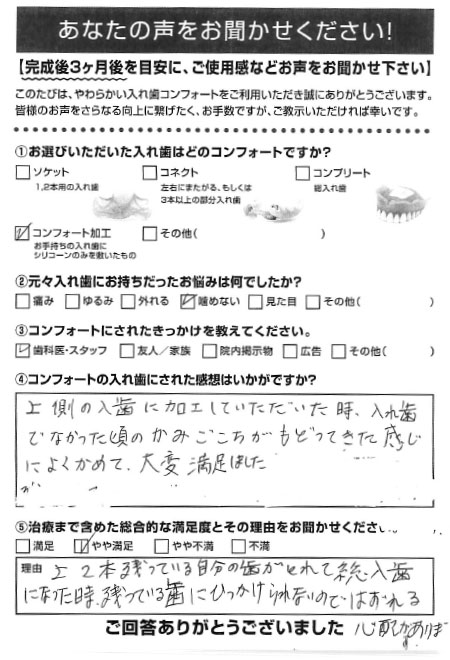 あなたの声をお聞かせください!
【完成後3ヶ月後を目安に、ご使用感などお声をお聞かせ下さい】
このたびは、やわらかい入れ歯コンフォートをご利用いただき誠にありがとうございます。
皆様のお声をさらなる向上に繋げたく、お手数ですが、ご教示いただければ幸いです。
①お選びいただいた入れ歯はどのコンフォートですか?
ソケット コネクト コンプリート
1,2本用の入れ歯 左右にまたがる、もしくは 総入れ歯
3本以上の部分入れ歯
コンフォート加工 その他( )
お手持ちの入れ歯に
シリコーンのみを敷いたもの
②元々入れ歯にお持ちだったお悩みは何でしたか?
痛み ゆるみ 外れる 噛めない 見た目 その他( )
③コンフォートにされたきっかけを教えてください。
歯科医・スタッフ 友人/家族 院内掲示物 広告 その他( )
④コンフォートの入れ歯にされた感想はいかがですか?
上側の入歯に加工していただいた時、入れ歯
でなかった頃のかみごこちがもどってきた感じ
によくかめて、大変満足しました
⑤治療まで含めた総合的な満足度とその理由をお聞かせくださ
満足 やや満足 やや不満 不満
理由 上2本残っている自分の歯がとれて総入歯
になった時、残っている歯にひっかけられないのではずれる
ご回答ありがとうございました 心配があります